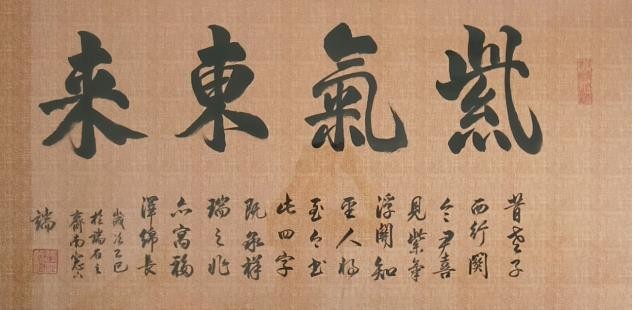 紫氣東来
昔老子
西行關
令尹喜
見紫氣
浮關知
聖人將
至今書
此四字
既祥
瑞之兆
亦寓福
澤綿長
歲次乙巳
於端石
齋南窗下
端